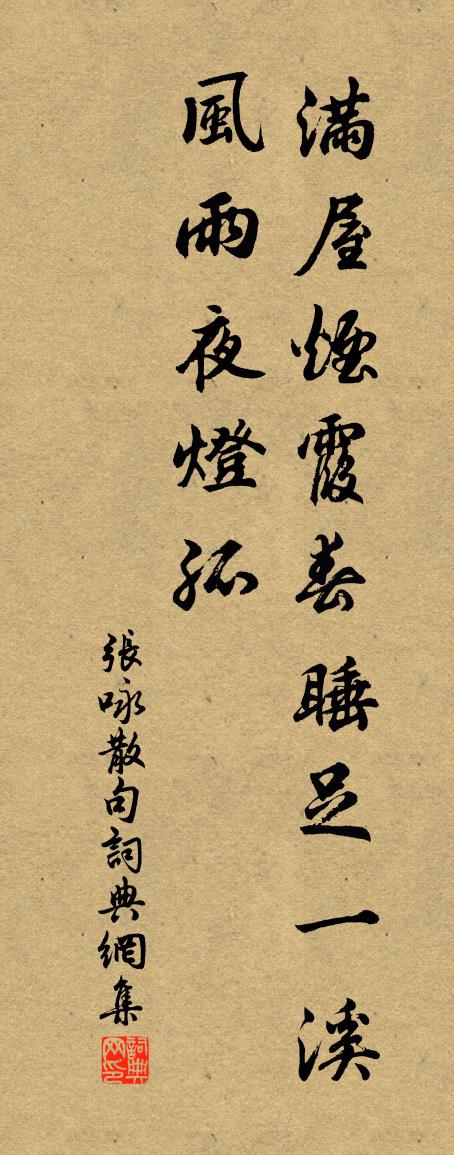 滿屋煙霞春睡足一溪
風雨夜燈孤
張咏散句詞典網集
詞典网印